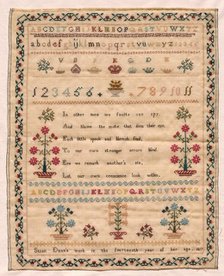 ABCDEFGHIJKLMNOPQRSTUVWXYZ
abcdefghijklmnopqrstuvwxyz
1 2 3 4 5 6 7 8 9 10 11
In other men we faults can spy
And blame the mote that dims their eye
Each little speck and blemish find
To our own stronger errors blind
Ere we remark another's sin
Let our own conscience look within
ABCDEFGHIJKLMNOPQRSTUVWXYZ
work in the year of her age